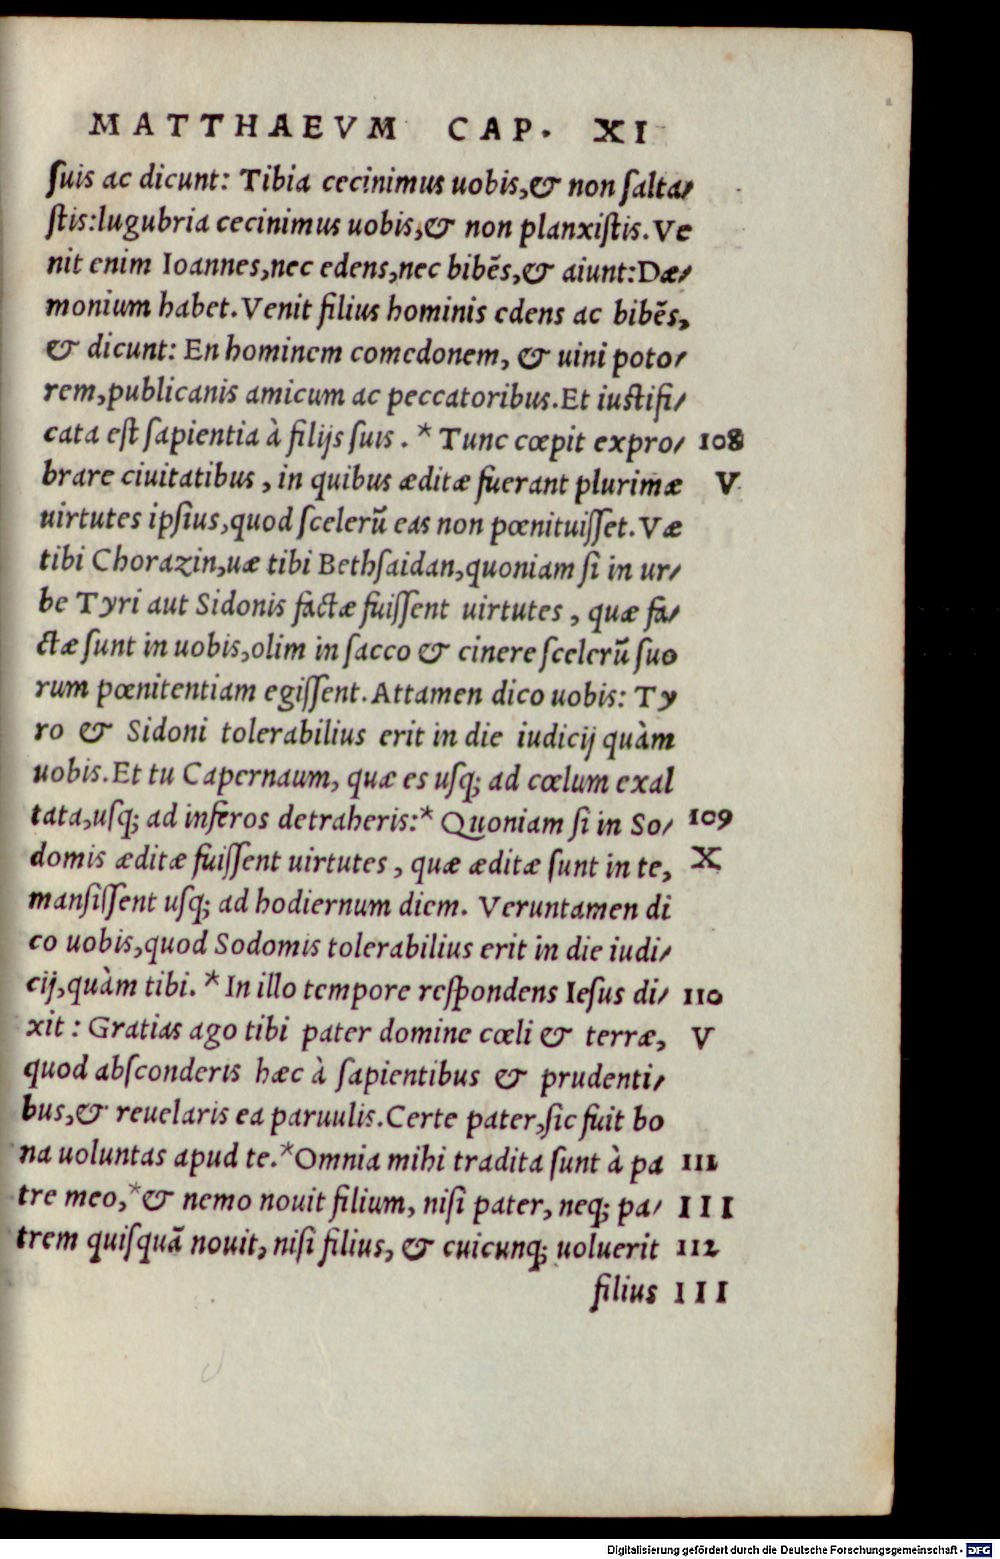 MATTHAEVM CAP. XI
ſuis ac dicunt: Tibia cecinimus uobis,& non ſalta/
ſtis:lugubria cecinimus uobis,& non planxiſtis.Ve
nit enim Ioannes,nec edens,nec bibẽs,& aiunt:Dæ/
monium habet.Venit filius hominis edens ac bibẽs,
& dicunt: En hominem comedonem, & uini poto/
rem,publicanis amicum ac peccatoribus.Et iuſtifi/
cata eſt ſapientia à filijs ſuis . * Tunc cœpit expro/ 108
brare ciuitatibus , in quibus æditæ fuerant plurimæ V
uirtutes ipſius,quod ſcelerũ eas non pœnituiſſet.Væ
tibi Chorazin,uæ tibi Bethſaidan,quoniam ſi in ur/
be Tyri aut Sidonis factæ fuiſſent uirtutes , quæ fa/
ctæ ſunt in uobis,olim in ſacco & cinere ſcelerũ ſuo
rum pœnitentiam egiſſent.Attamen dico uobis: Ty
ro & Sidoni tolerabilius erit in die iudicij quàm
uobis.Et tu Capernaum, quæ es uſq; ad cœlum exal
tata,uſq; ad inferos detraheris:* Quoniam ſi in So/ 109
domis æditæ fuiſſent uirtutes , quæ æditæ ſunt in te, X
manſiſſent uſq; ad hodiernum diem. Veruntamen di
co uobis,quod Sodomis tolerabilius erit in die iudi/
cij,quàm tibi. * In illo tempore reſpondens Ieſus di/ 110
xit : Gratias ago tibi pater domine cœli & terræ, V
quod abſconderis hæc à ſapientibus & prudenti/
bus,& reuelaris ea paruulis.Certe pater,ſic fuit bo
na uoluntas apud te.*Omnia mihi tradita ſunt à pa 111
tre meo,*& nemo nouit filium, niſi pater, neq; pa/ III
trem quiſquã nouit, niſi filius, & cuicunq; uoluerit 112
filius III
Digitalisierung gefördert durch die Deutsche Forschungsgemeinschaft - DFG